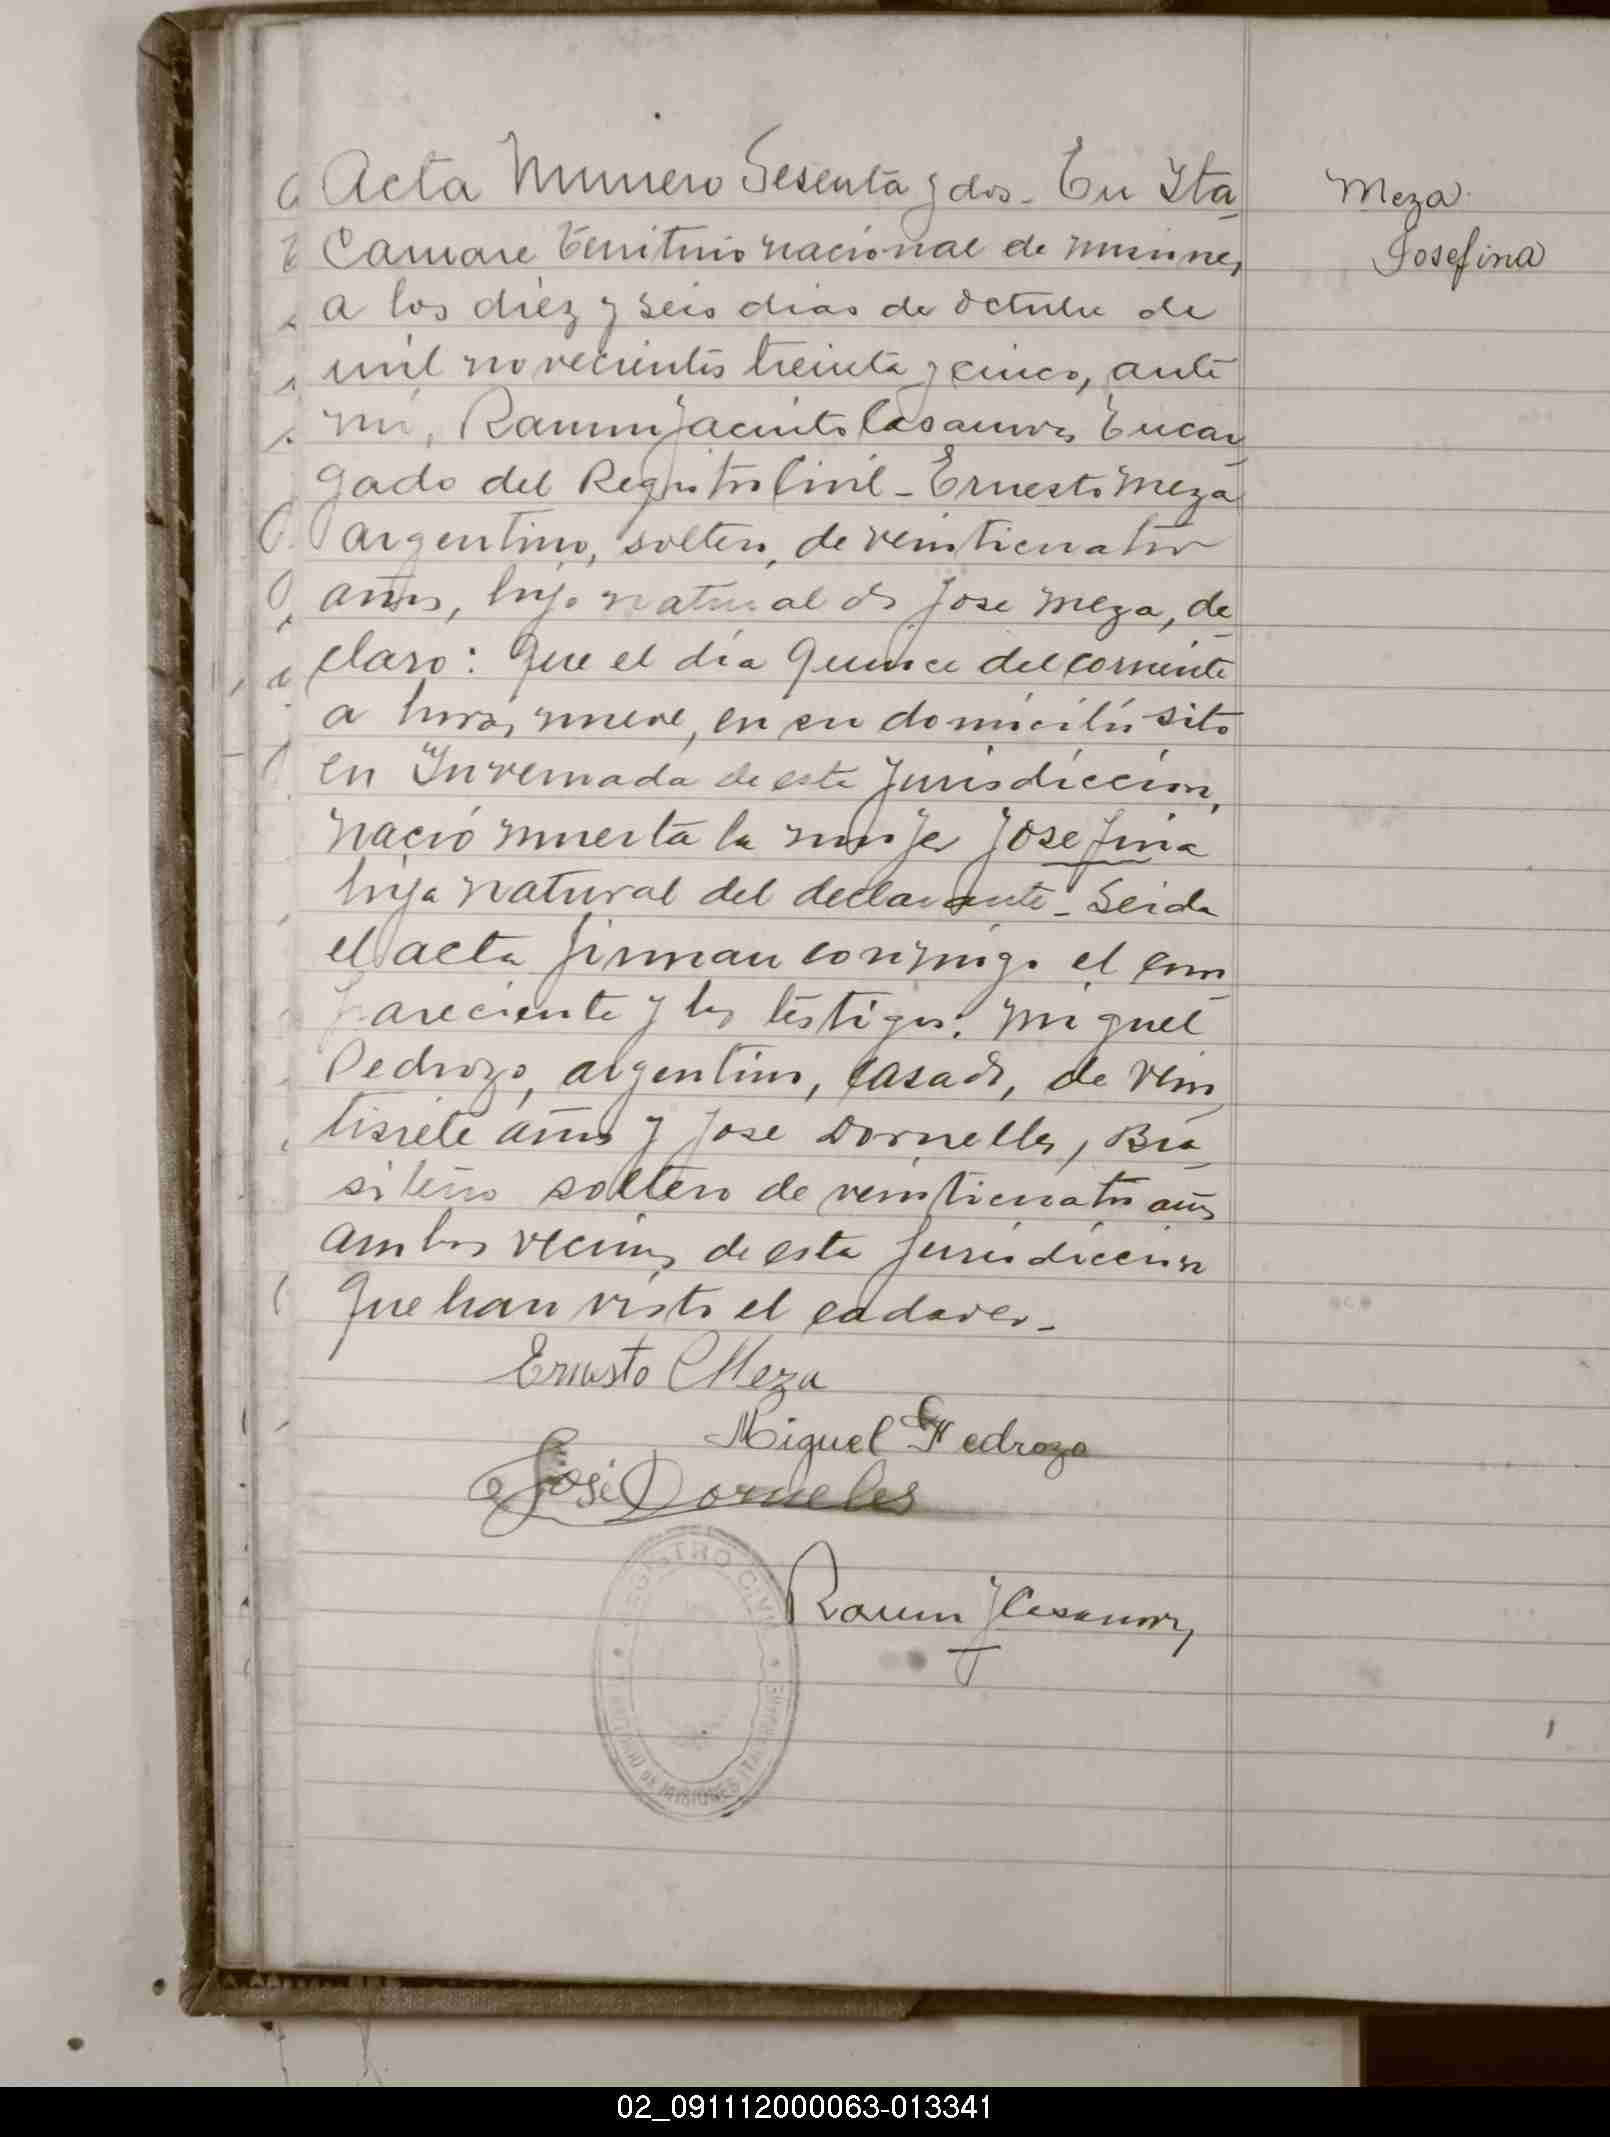 Acta Numero Sesenta y dos - En Ita-
Caruare territorio nacional de misiones,
a los diez y seis dias de octubre de
mil novecientos treinta y cinco, ante
mi, Ramon Jacinto Casanova Encar-
gado del Registro Civil - Ernesto Meza
argentino, soltero, de veinticuatro
años, hijo natural de Jose Meza, de-
claro: Que el día quince del corriente
a horas nueve, en su domicilio sito
en Invernada de esta Jurisdiccion,
nació muerta la mujer Josefina
hija natural del declarante - Leida
el acta firman conmigo el com
pareciente y los testigos: Miguel
Pedrozo, argentino, casado, de vein
tisiete años y Jose Dornelles, Bra-
sileño soltero de veinticuatro años
ambos vecinos de esta Jurisdiccion
que han visto el cadaver -
Ernesto Meza
Miguel Pedrozo
José Dorneles
Ramon J Casanova
Meza
Josefina
REGISTRO CIVIL
TERRITORIO DE MISIONES ITACARUARE
02_091112000063-013341